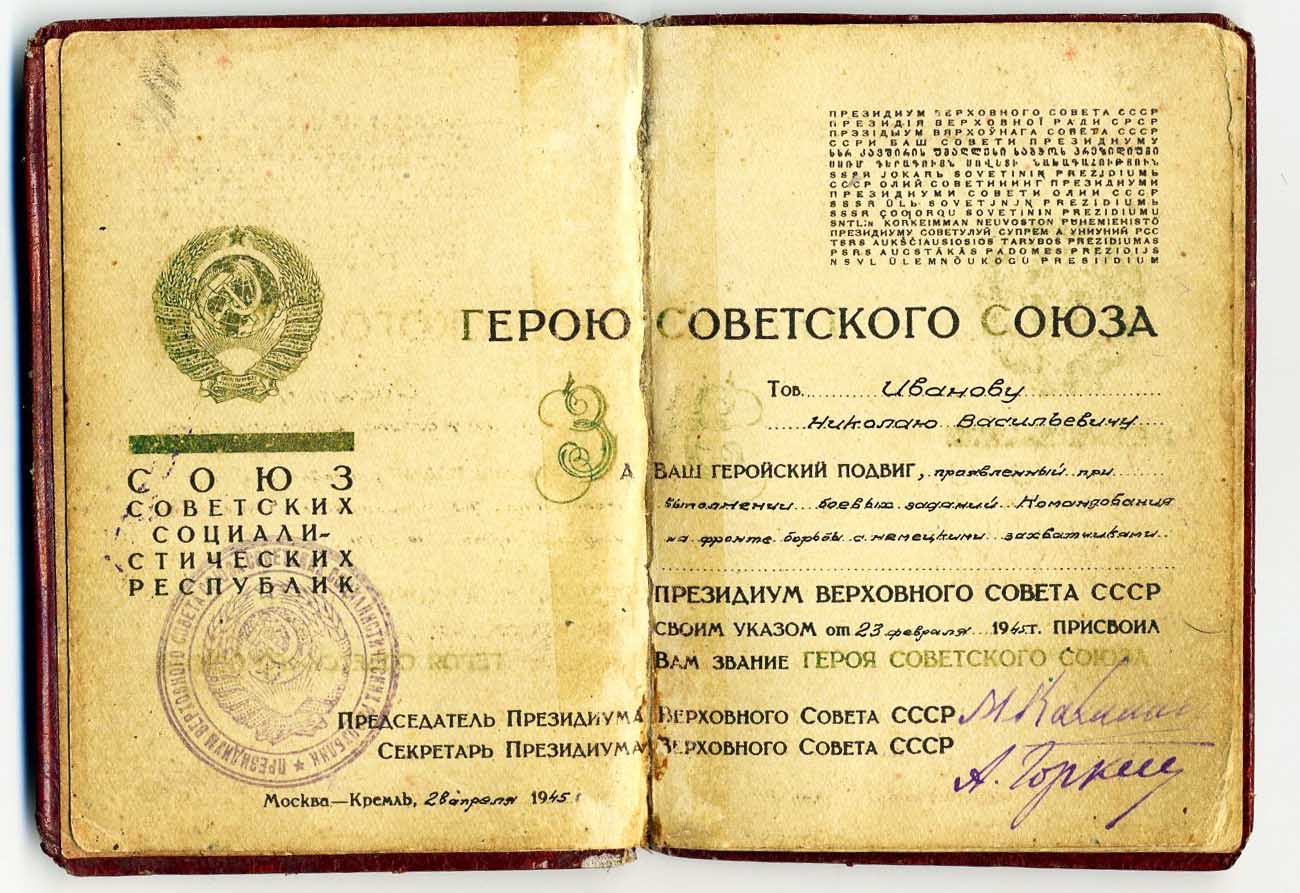 ПРЕЗИДИУМ ВЕРХОВНОГО СОВЕТА СССР
ПРЕЗИДІЯ ВЕРХОВНОЇ РАДИ СРСР
ПРЭЗІДЫУМ ВЯРХОЎНАГА СОВЕТА СССР
ССРИ БАШ СОВЕТИ ПРЕЗИДИУМУ
სსრ კავშირის უმაღლესი საბჭოს პრეზიდიუმი
ՍՍՌՄ ԳԵՐԱԳՈՒՅՆ ՍՈՎԵՏԻ ՆԱԽԱԳԱՀՈՒԹՅՈՒՆ
SSSR JOKARЬ SOVETININ PREZIDIUMЬ
СССР ОЛИЙ СОВЕТИНИНГ ПРЕЗИДИУМИ
ПРЕЗИДИУМИ СОВЕТИ ОЛИИ СССР
SSSR ÜLЬ SOVETJNJꞐ PREZIDIUMЬ
SSSR ÇOOꞐORQU SOVETININ PREZIDIUMU
SNTL:N KORKEIMMAN NEUVOSTON PUHEMIEHISTÖ
ПРЕЗИДИУМУ СОВЕТУЛУЙ СУПРЕМ А УНИУНИЙ РСС
TSRS AUKŠČIAUSIOSIOS TARYBOS PREZIDIUMAS
PSRS AUGSTĀKĀS PADOMES PREZIDIJS
NSVL ÜLEMNÕUKOGU PRESIIDIUM
ГЕРОЮ СОВЕТСКОГО СОЮЗА
Тов. Иванову
Николаю Васильевичу
ЗА ВАШ ГЕРОЙСКИЙ ПОДВИГ, проявленный при
выполнении боевых заданий Командования
на фронте борьбы с немецкими захватчиками
ПРЕЗИДИУМ ВЕРХОВНОГО СОВЕТА СССР
СВОИМ УКАЗОМ от 23 февраля 1945 г. ПРИСВОИЛ
ВАМ ЗВАНИЕ ГЕРОЯ СОВЕТСКОГО СОЮЗА
СОЮЗ
СОВЕТСКИХ
СОЦИАЛИ-
СТИЧЕСКИХ
РЕСПУБЛИК
ПРЕДСЕДАТЕЛЬ ПРЕЗИДИУМА ВЕРХОВНОГО СОВЕТА СССР М Калинин
СЕКРЕТАРЬ ПРЕЗИДИУМА ВЕРХОВНОГО СОВЕТА СССР А. Горкин
МОСКВА—КРЕМЛЬ, 28 апреля 1945 г